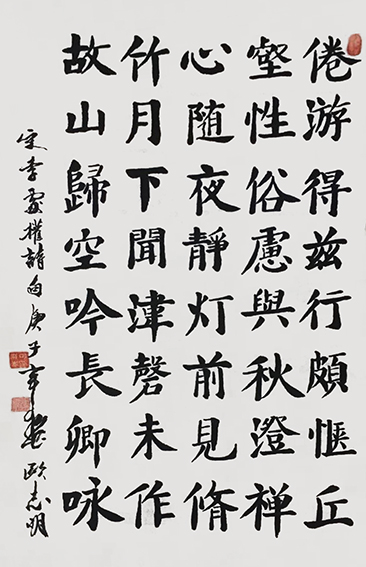 倦游得兹行頗惬丘
壑性俗慮與秋澄禅
心随夜靜灯前見脩
竹月下聞津磬未作
故山歸空吟長卿咏
宋李處權詩句庚子年歐志明